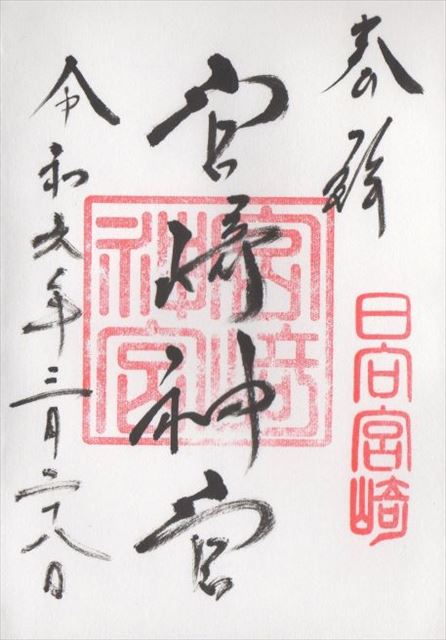 奉拝
日向宮崎
宮崎神宮
宮崎神宮
令和六年三月二十八日